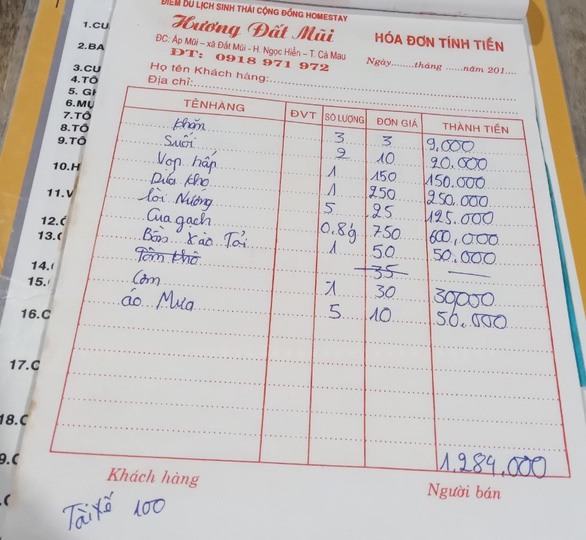 ĐIỂM DU LỊCH SINH THÁI CỘNG ĐỒNG HOMESTAY
Hương Đất Mũi
ĐC: Ấp Mũi – xã Đất Mũi - H. Ngọc Hiển – T. Cà Mau
ĐT: 0918 971 972
HÓA ĐƠN TÍNH TIỀN
Ngày........tháng ......năm 201....
Họ tên Khách hàng:
Địa chỉ:
TÊN HÀNG ĐVT SỐ LƯỢNG ĐƠN GIÁ THÀNH TIỀN
Khăn 3 3 9,000
Suối 2 10 20.000
Vọp hấp 1 150 150.000
Dứa kho 1 250 250.000
Nướng 5 25 125.000
Cua gạch 0.8g 750 600,000
Bồn Xào Tỏi 1 50 50.000
Tôm khô 35
Cơm 1 30 30,000
áo Mưa 5 10 50.000
1.284,000
Khách hàng
Người bán
Tài xế 100
1.CU
2.BA
3.CU
4.TÔ
5. GH
6.MỰ
7.TÔ
8.TÔ
9.TÔ
10.H
11.V
12.
13.
14.
15.
16.C
17.C
18.C
9.C